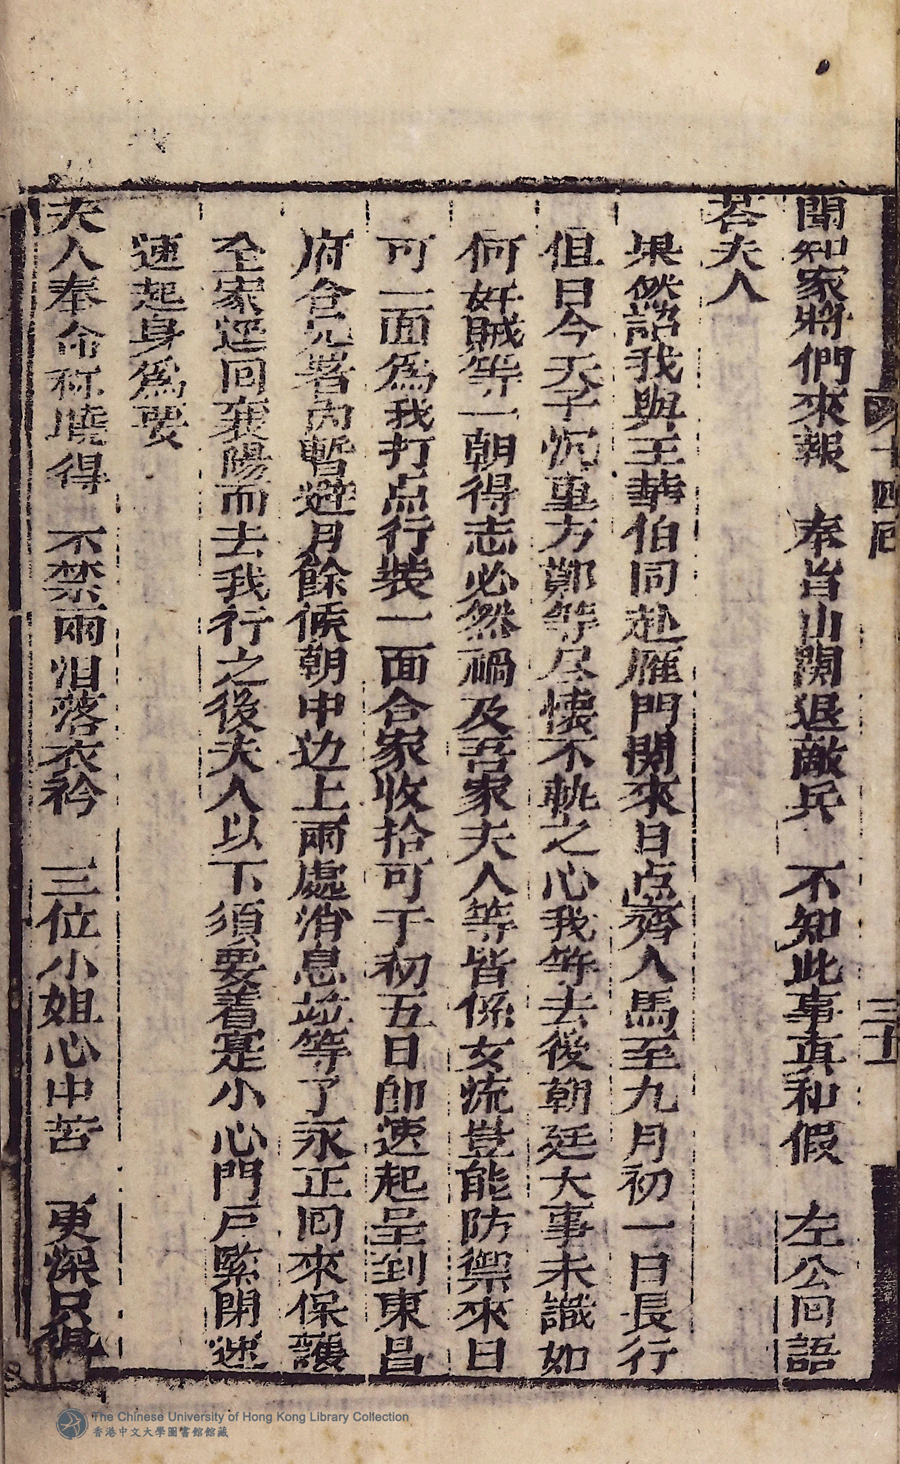 聞知家將們來報　奉旨山關退敵兵　不知此事真和假　左公回語
荅夫人
果然詔我與王華伯同赴雁門関來日点齊人馬至九月初一日長行
但日今天子沉重方鄭等尽懐不軌之心我等去後朝廷大事未識如
何奸賊等一朝得志必然禍及吾家夫人等皆係女流豈能防禦來日
可一面爲我打点行裝一面合家收拾可于初五日即速起呈到東昌
府合兄署内暫避月餘候朝中边上兩處消息竝等了永正回來保護
全家逕回襄陽而去我行之後夫人以下須要着寔小心門戶緊閉速
速起身爲要
夫人奉命称曉得　不禁兩泪落衣衿　三位小姐心中苦　更深只得
十四囘
三十
The Chinese University of Hong Kong Library Collection
香港中文大學圖書館館藏